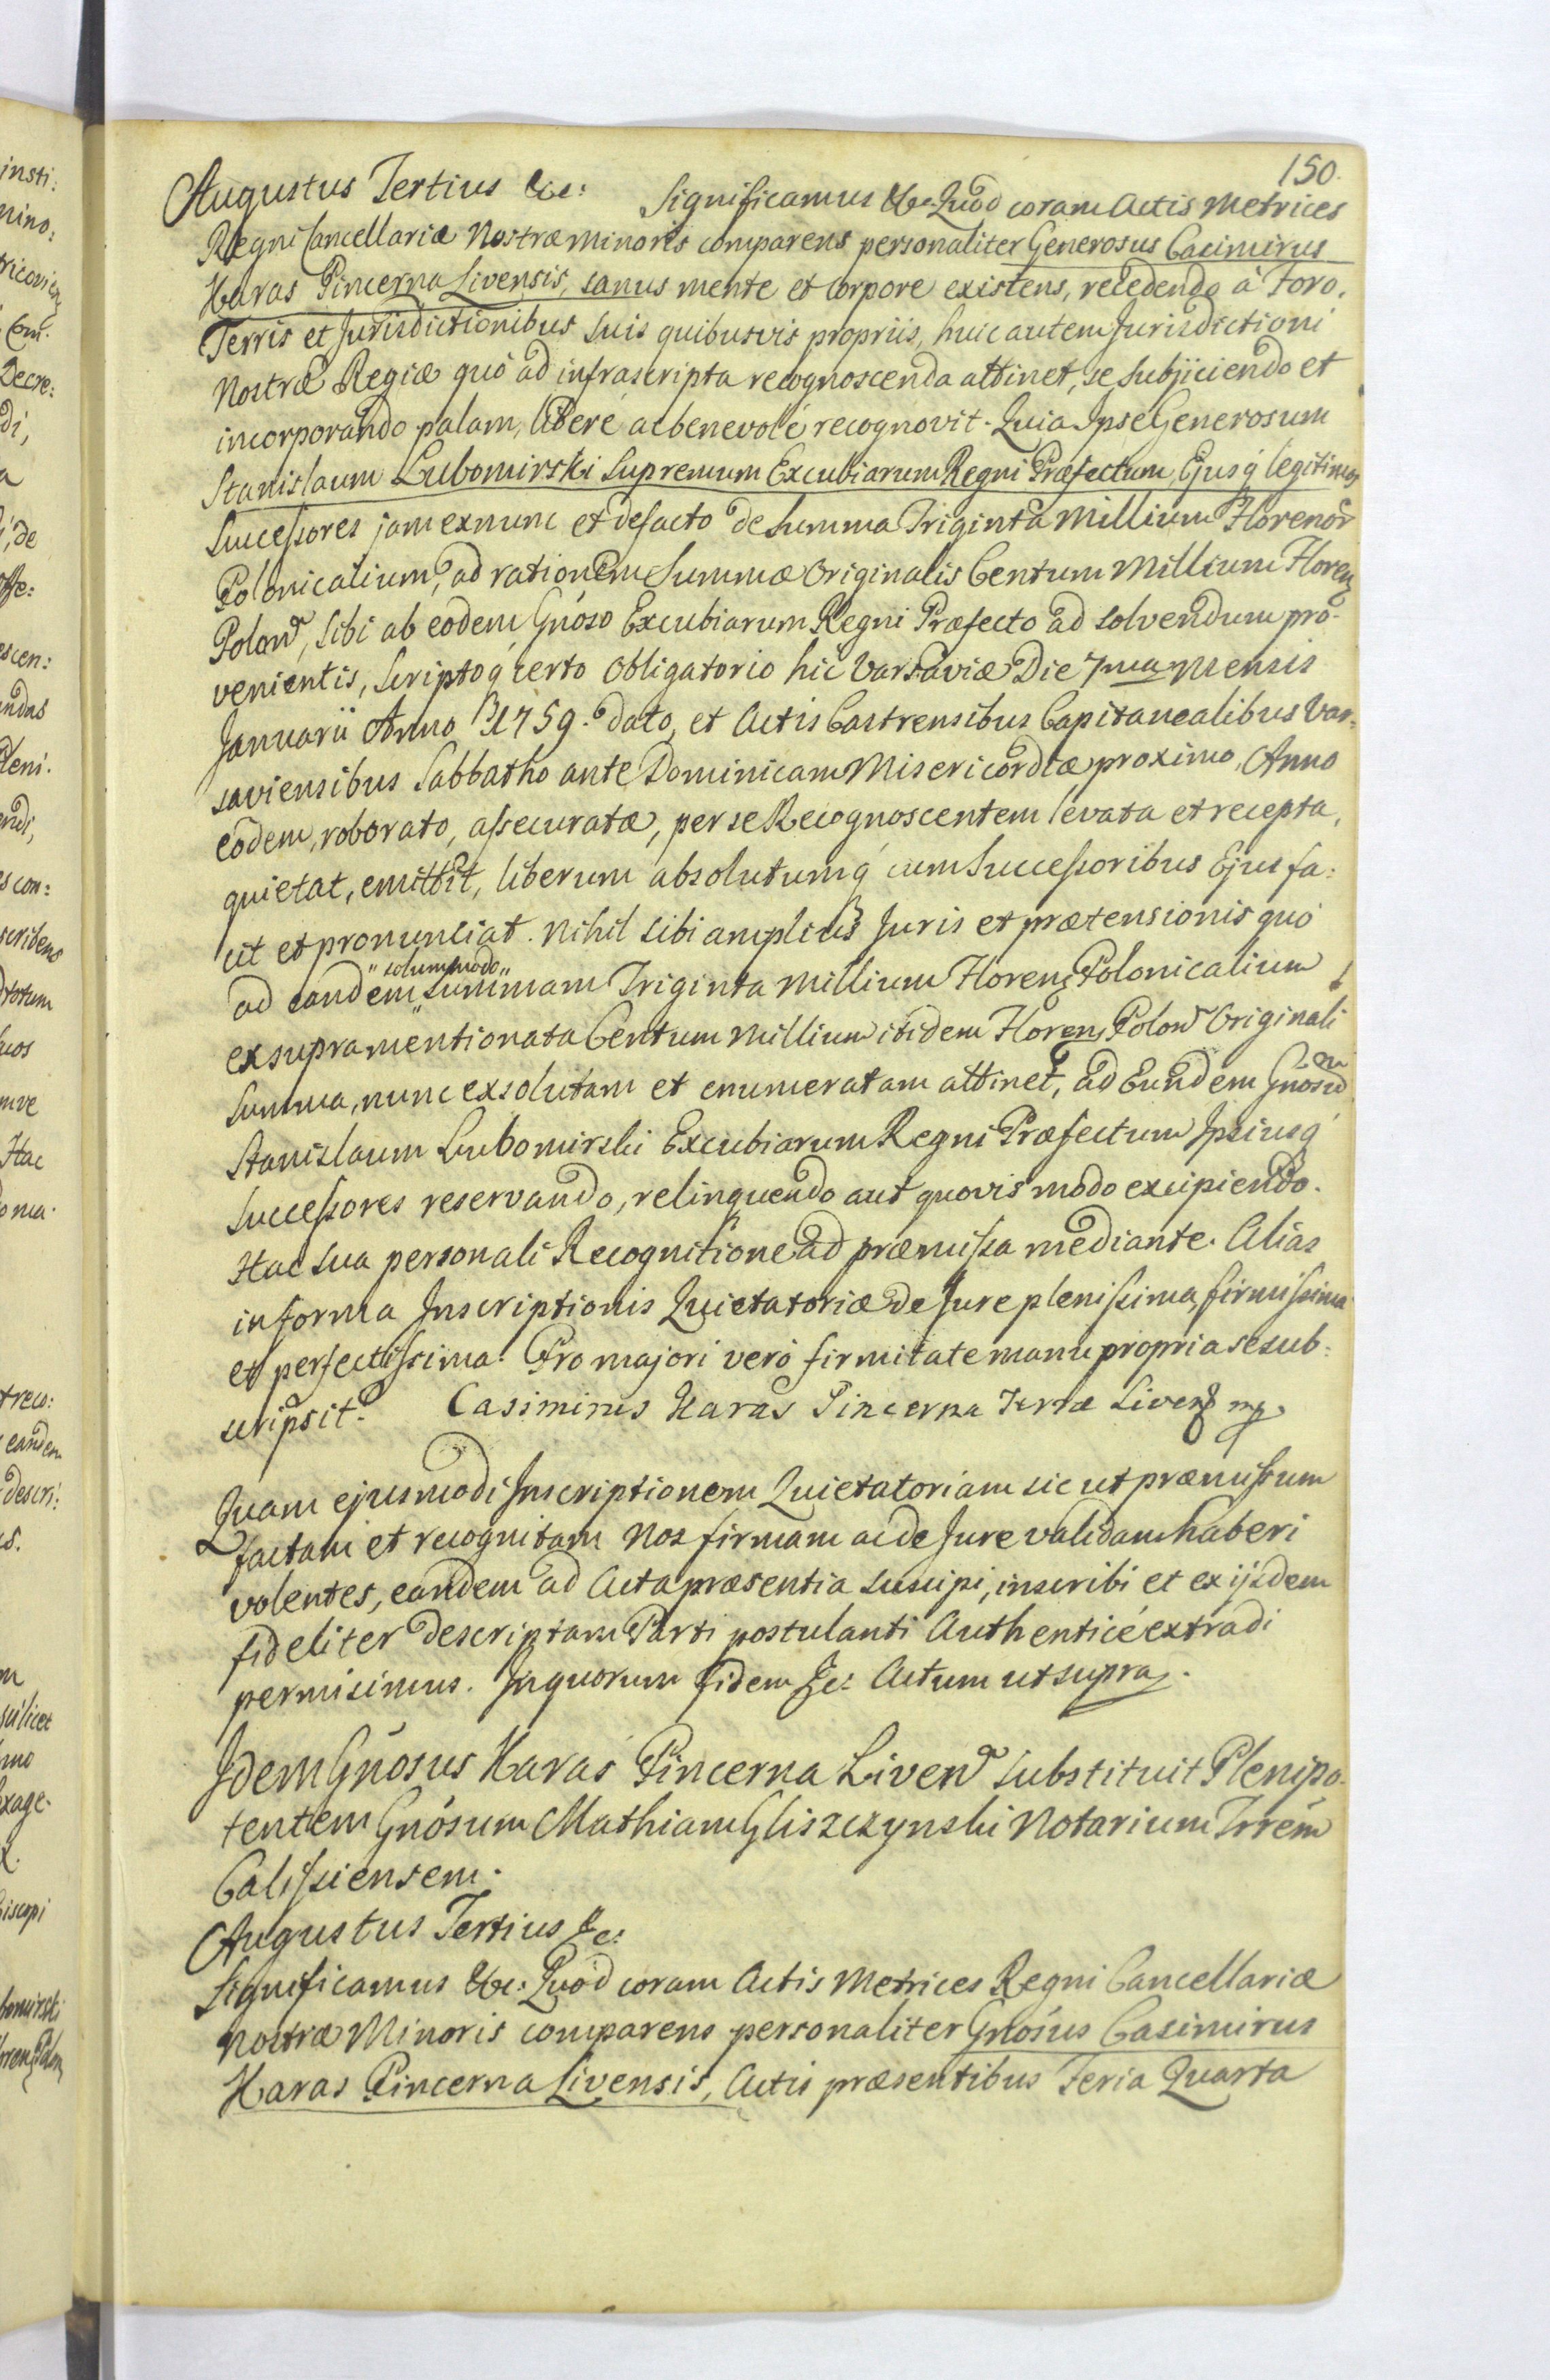 150.
Augustus Tertius &c: Significamus &c. Quod coram Actis Metrices
Regni Cancellariæ Nostræ minoris comparens personaliter Generosus Casimirus
Karas Pincerna Livensis, sanus mente et corpore existens, recedendo à Foro,
Terris et Jurisdictionibus suis quibusvis propriis, huic autem Jurisdictioni
Nostræ Regiæ quò ad infrascripta recognoscenda attinet, se subjiciendo et
incorporando palam, liberé ac benevolé recognovit. Quia Ipse Generosum
Stanislaum Lubomirski Supremum Excubiarum Regni Præfectum, Ejusq́ legitimos
Successores jam exnunc et defacto de Summa Triginta Millium Florenor
Polonicalium, ad rationem Summæ Originalis Centum Millium Floren
Polon, sibi ab eodem Gnóso Excubiarum Regni Præfecto ad solvendum pro-
venientis, Scriptoq́ certo Obligatorio hic Varsaviæ Die 7ma mensis
Januarii Anno 1759. dato, et Actis Castrensibus Capitanealibus Var-
saviensibus Sabbatho ante Dominicam Misericordiæ proximo, Anno
eodem, roborato, assecuratæ, per se Recognoscentem levata et recepta,
quietat, emittit, liberum absolutumq́ cum Successoribus Ejus fa:
cit et pronunciat. Nihil sibi amplius Juris et prætensionis quó
ad eandem "solummodo" Summam Triginta Millium Floren Polonicalium
ex supramentionata Centum Millium itidem Floren Polon Originali
Summa, nunc exsolutam et enumeratam attinet, ad Eundem Gnosum
Stanislaum Lubomirski Excubiarum Regni Præfectum Ipsiusq́
Successores reservando, relinquendo aut quovis modo excipiendo.
Hac sua personali Recognitione ad præmissa mediante. Alias
in forma Inscriptionis Quietatoriæ de Jure plenissima, firmissima
et perfectissima. Pro majori veró firmitate manu propria se sub:
scripsit. Casimirus Karas Pincerna Terræ Livens mp.
Quam ejusmodi Inscriptionem Quietatoriam sic ut præmissum
factam et recognitam Nos firmam ac de Jure validam haberi
volentes, eandem ad Acta præsentia suscipi, inscribi et ex ijsdem
fideliter descriptam Parti postulanti Authenticé extradi
permisimus. In quorum fidem &c: Actum ut supra.
Idem Gnósus Karas Pincerna Liven substituit Plenipo-
tentem Gnósum Mathiam Gliszczynski Notarium Trrém
Calissiensem.
Augustus Tertius &c:
Significamus &c: Quod coram Actis Metrices Regni Cancellariæ
Nostræ Minoris comparens personaliter Gnósus Casimirus
Karas Pincerna Livensis, Actis præsentibus Feria Quarta